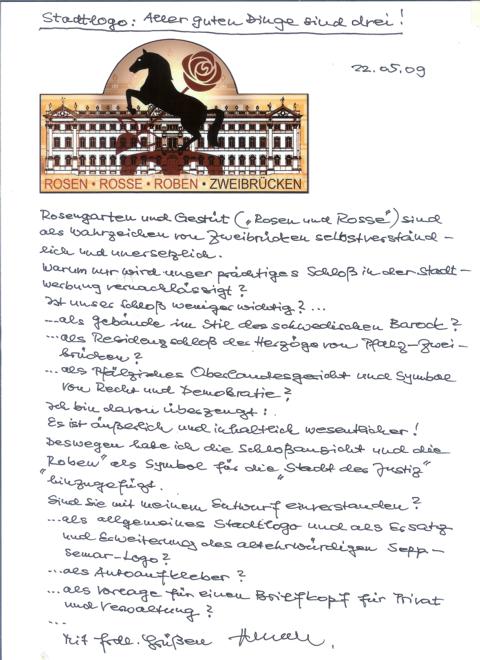 Stadtlogo: Aller guten Dinge sind drei!
22.05.09
ROSEN • ROSSE • ROBEN • ZWEIBRÜCKEN
Rosengarten und Gestüt („Rosen und Rosse") sind
als Wahrzeichen von Zweibrücken selbstverständ-
lich und unersetzlich.
Warum nur wird unser prächtiges Schloß in der Stadt-
werbung vernachlässigt?
Ist unser Schloß weniger wichtig? ...
...als Gebäude im Stil des schwedischen Barock?
...als Residenzschloß der Herzöge von Pfalz-Zwei-
brücken?
...als Pfälzisches Oberlandesgericht und Symbol
von Recht und Demokratie?
Ich bin davon überzeugt:
Es ist äußerlich und inhaltlich wesentlicher!
Deswegen habe ich die Schloßansicht und die
"Roben" als Symbol für die "Stadt der Justiz"
hinzugefügt.
Sind Sie mit meinem Entwurf einverstanden?
...als allgemeines Stadtlogo und als Ersatz
und Erweiterung des altehrwürdigen Sepp-
Semar-Logo?
...als Autoaufkleber?
...als Vorlage für einen Briefkopf für Privat
und Verwaltung?
...
Mit frdl. Grüßen